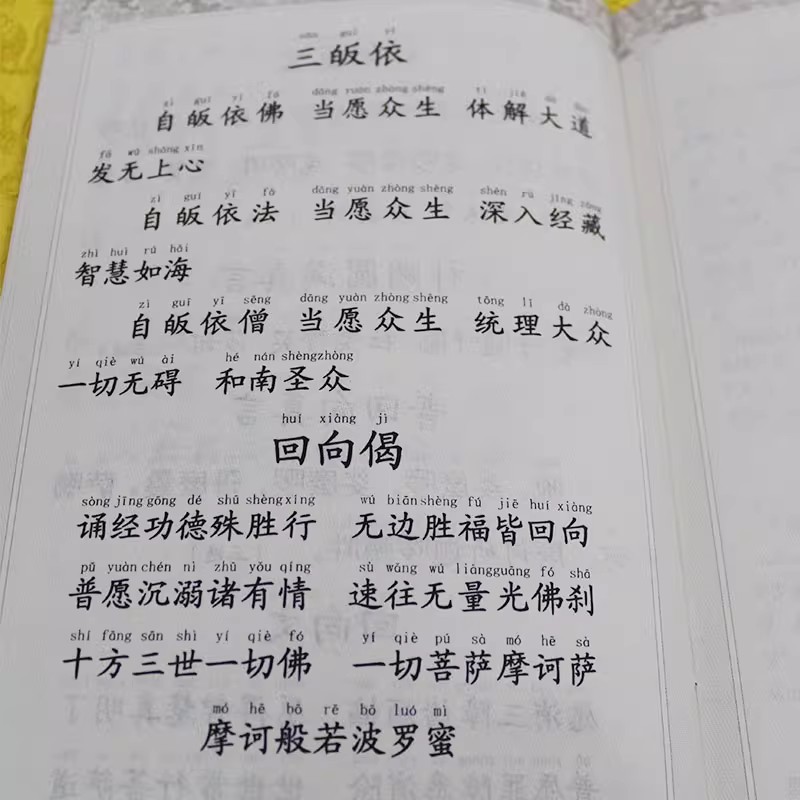 sān guī yī
三皈依
zì guī yī fó dāng yuàn zhòng shēng tǐ jiě dà dào
自皈依佛 当愿众生 体解大道
fā wú shàng xīn
发无上心
zì guī yī fǎ dāng yuàn zhòng shēng shēn rù jīng zàng
自皈依法 当愿众生 深入经藏
zhì huì rú hǎi
智慧如海
zì guī yī sēng dāng yuàn zhòng shēng tǒng lǐ dà zhòng
自皈依僧 当愿众生 统理大众
yí qiè wú ài hé nán shèng zhòng
一切无碍 和南圣众
huí xiàng jì
回向偈
sòng jīng gōng dé shū shèng xíng wú biān shèng fú jiē huí xiàng
诵经功德殊胜行 无边胜福皆回向
pǔ yuàn chén nì zhū yǒu qíng sù wǎng wú liàng guāng fó shā
普愿沉溺诸有情 速往无量光佛刹
shí fāng sān shì yí qiè fó yí qiè pú sà mó hē sà
十方三世一切佛 一切菩萨摩诃萨
mó hē bō rě bō luó mì
摩诃般若波罗蜜